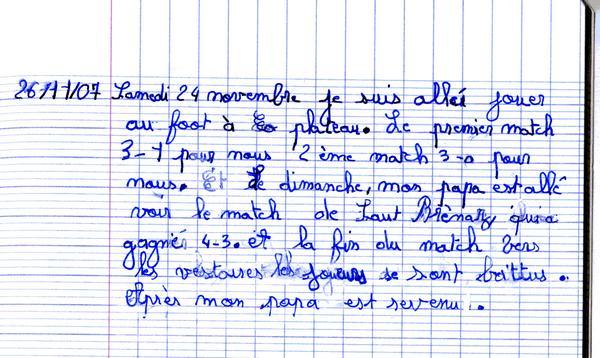 26/11/07 Samedi 24 novembre je suis allé jouer
au foot à plateau. Le premier match
3-1 pour nous 2 ème match 3-0 pour
nous. Et le dimanche, mon papa est allé
voir le match de Saut qui a
gagnés 4-3. et la fin du match vers
les vestaires les joueurs se sont battus.
Après mon papa est revenu.